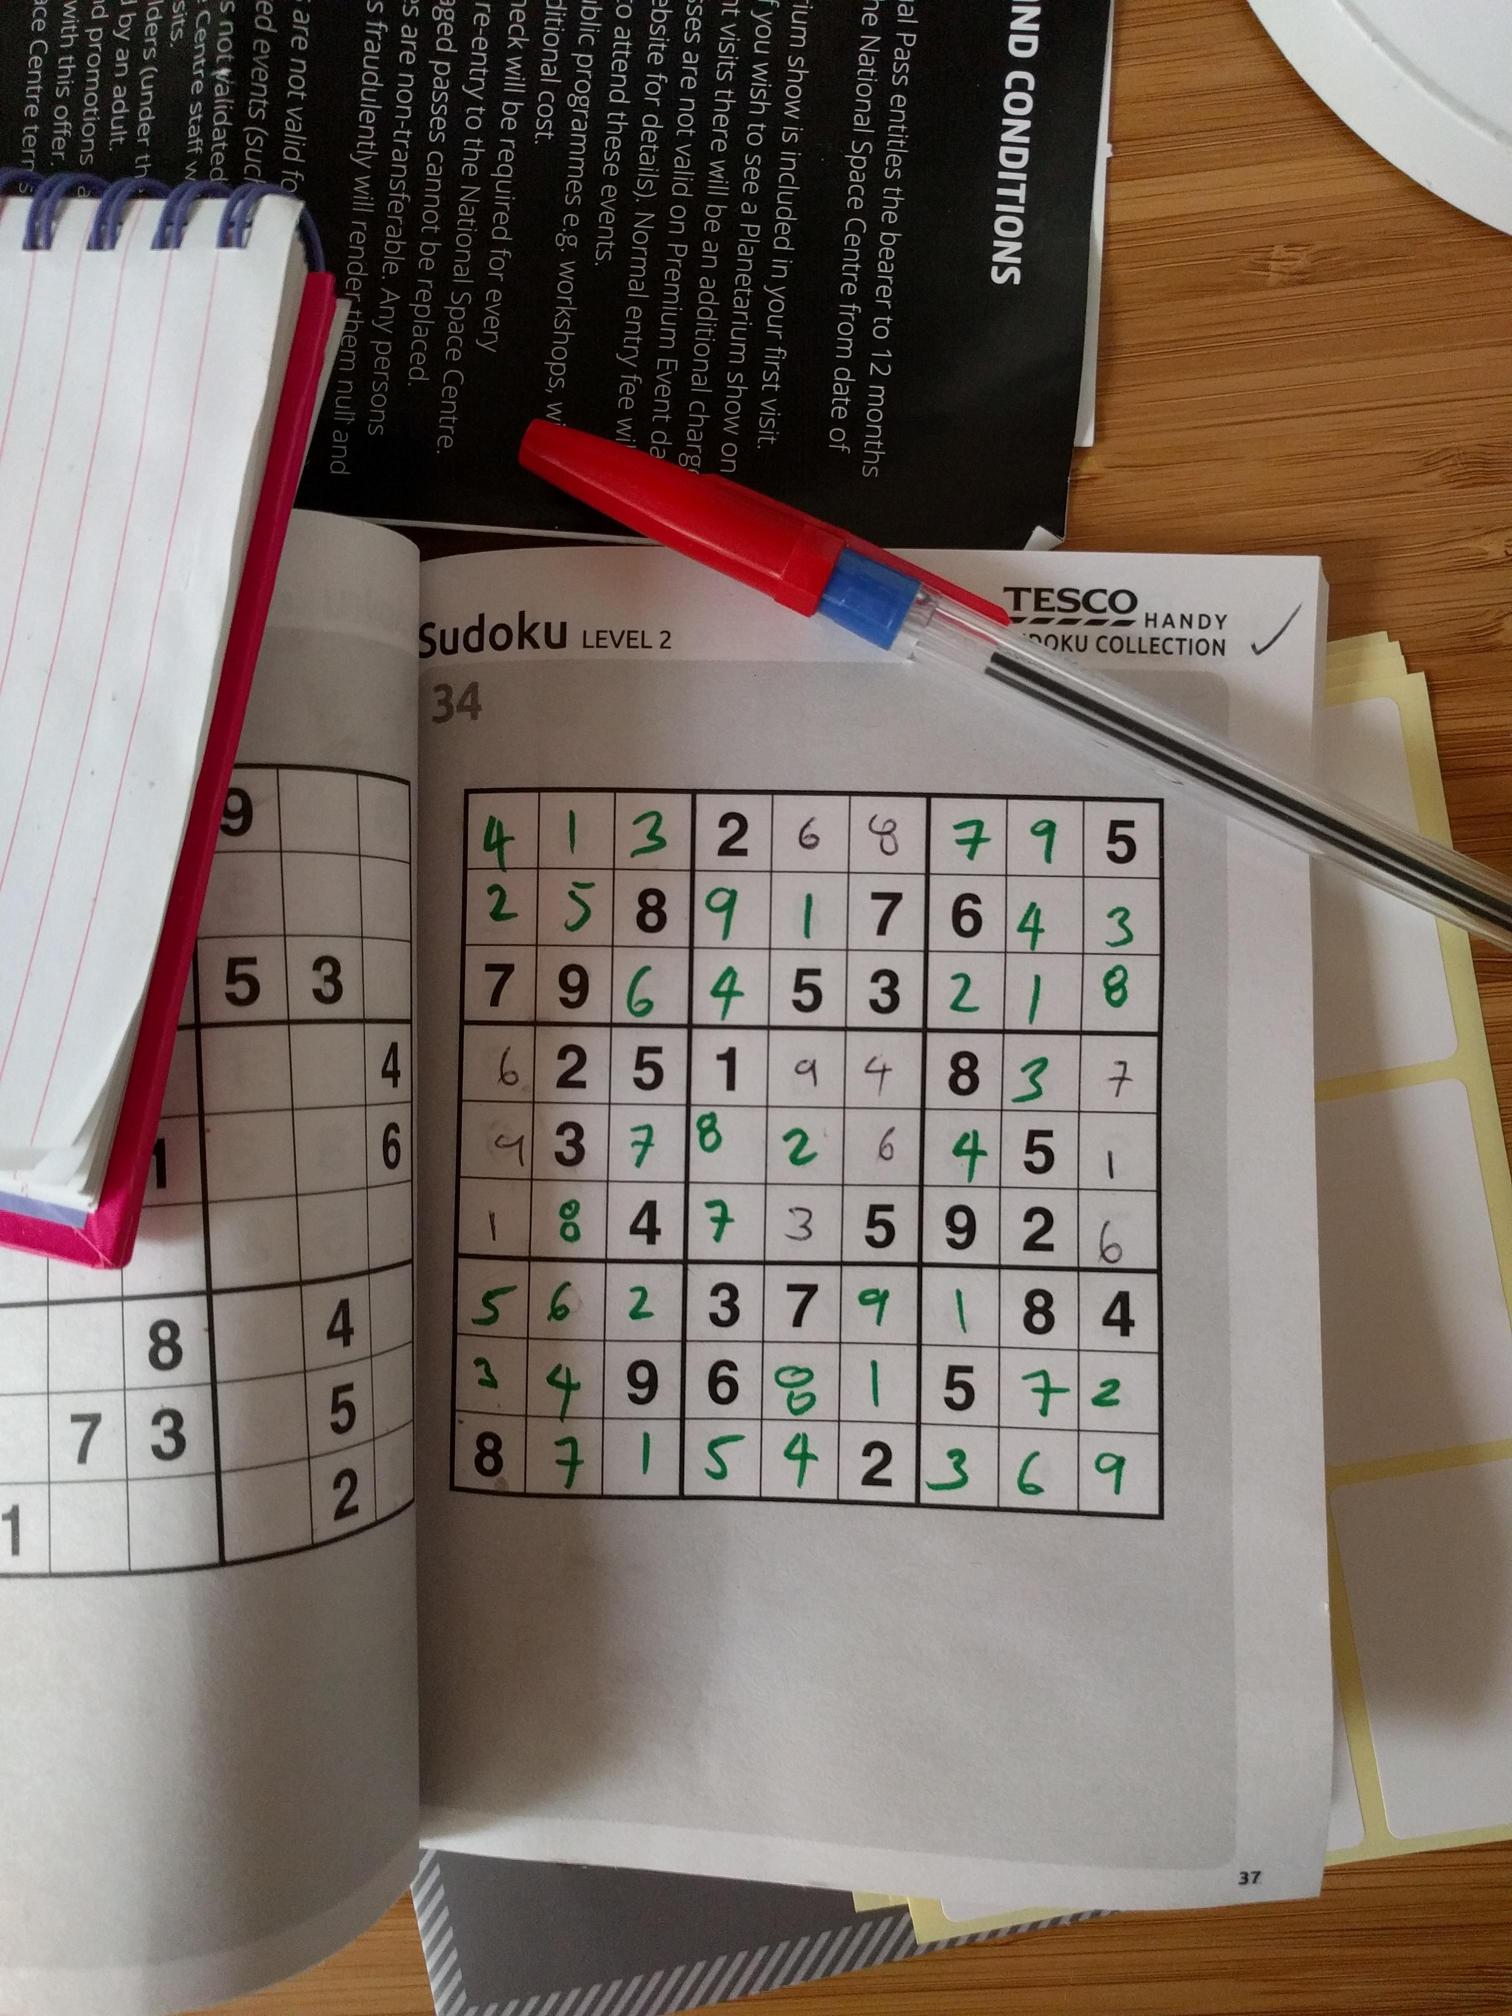 AND CONDITIONS
al Pass entitles the bearer to 12 months
he National Space Centre from date of
ium show is included in your first visit.
f you wish to see a Planetarium show on
t visits there will be an additional charge
ses are not valid on Premium Event da
ebsite for details). Normal entry fee wi
o attend these events.
ublic programmes e.g. workshops, wi
ditional cost.
heck will be required for every
re-entry to the National Space Centre.
aged passes cannot be replaced.
es are non-transferable. Any persons
s fraudulently will render them null and
are not valid fo
ed events (suc
s not validated
Centre staff w
sitrs.
lders (under th
d by an adult.
d promotions a
with this offer,
ace Centre term
Sudoku LEVEL 2
TESCO HANDY
DOKU COLLECTION
34
4 1 3 2 6 8 7 9 5
2 5 8 9 1 7 6 4 3
7 9 6 4 5 3 2 1 8
6 2 5 1 9 4 8 3 7
9 3 7 8 2 6 4 5 1
1 8 4 7 3 5 9 2 6
5 6 2 3 7 9 1 8 4
3 4 9 6 8 1 5 7 2
8 7 1 5 4 2 3 6 9
37
9
5 3
4
1 6
8 4
7 3 5
1 2